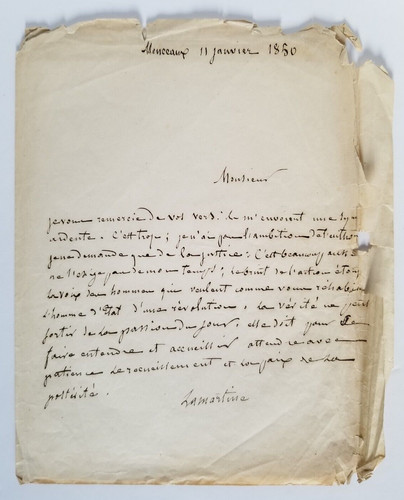 Monceaux 11 janvier 1850
Monsieur
je vous remercie de vos vers: ils m'envoient une
ardente. C'est trop; je n'ai pas l'ambition d'
je ne demande que de la justice: C'est beaucoup
ne l'exige pas de mon temps; le bruit de l'action
la voix des hommes qui veulent comme vous
l'homme d'Etat d'une révolution. La vérité ne peut
sortir de la passion du jour, elle doit pour se
faire entendre et accueillir attendre avec
patience le recueillement et la paix de la
postérité.
Lamartine